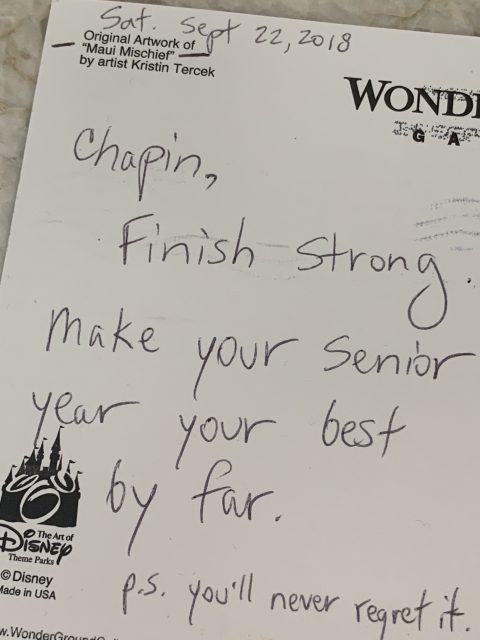 Sat. Sept 22, 2018
Original Artwork of
"Maui Mischief"
by artist Kristin Tercek
WOND
G A
Chapin,
Finish strong.
Make your senior
year your best
by far.
The Art of
Disney
Theme Parks
© Disney
Made in USA
p.s. you'll never regret it.